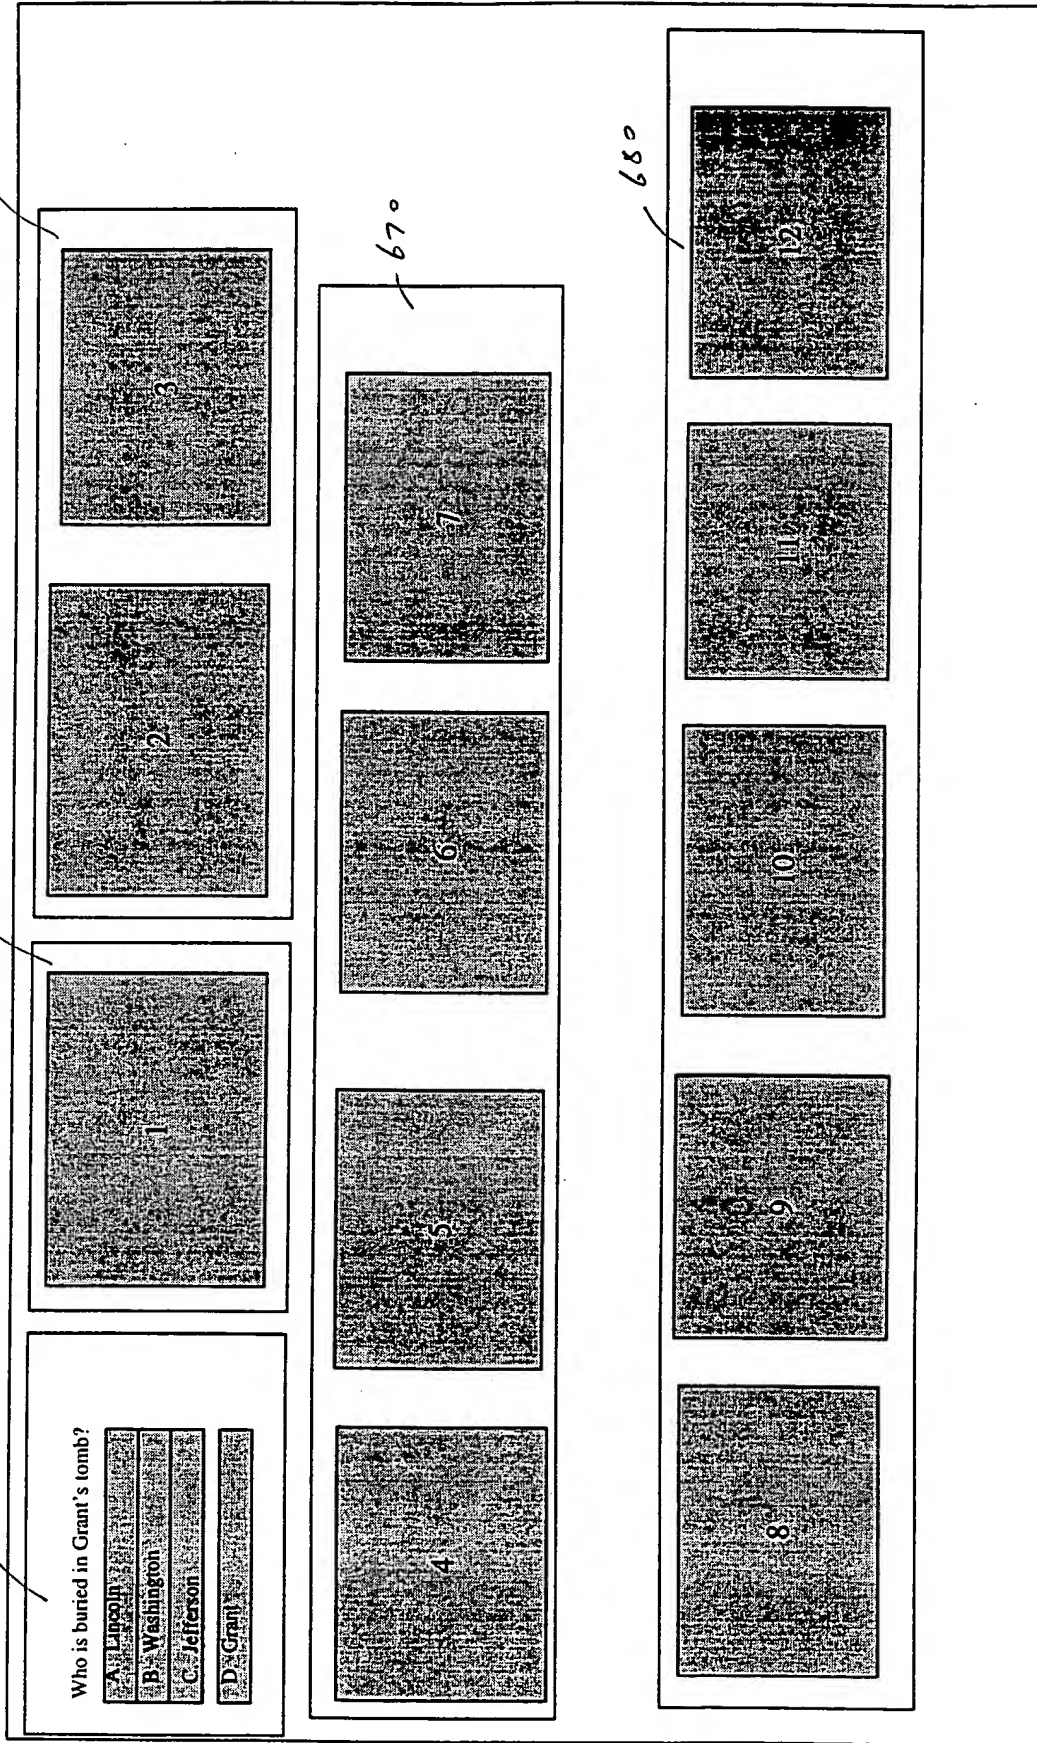 Who is buried in Grant's tomb?
A. Lincoln
B. Washington
C. Jefferson
D. Grant
1
2
3
4
5
6
7
670
8
9
10
11
12
680